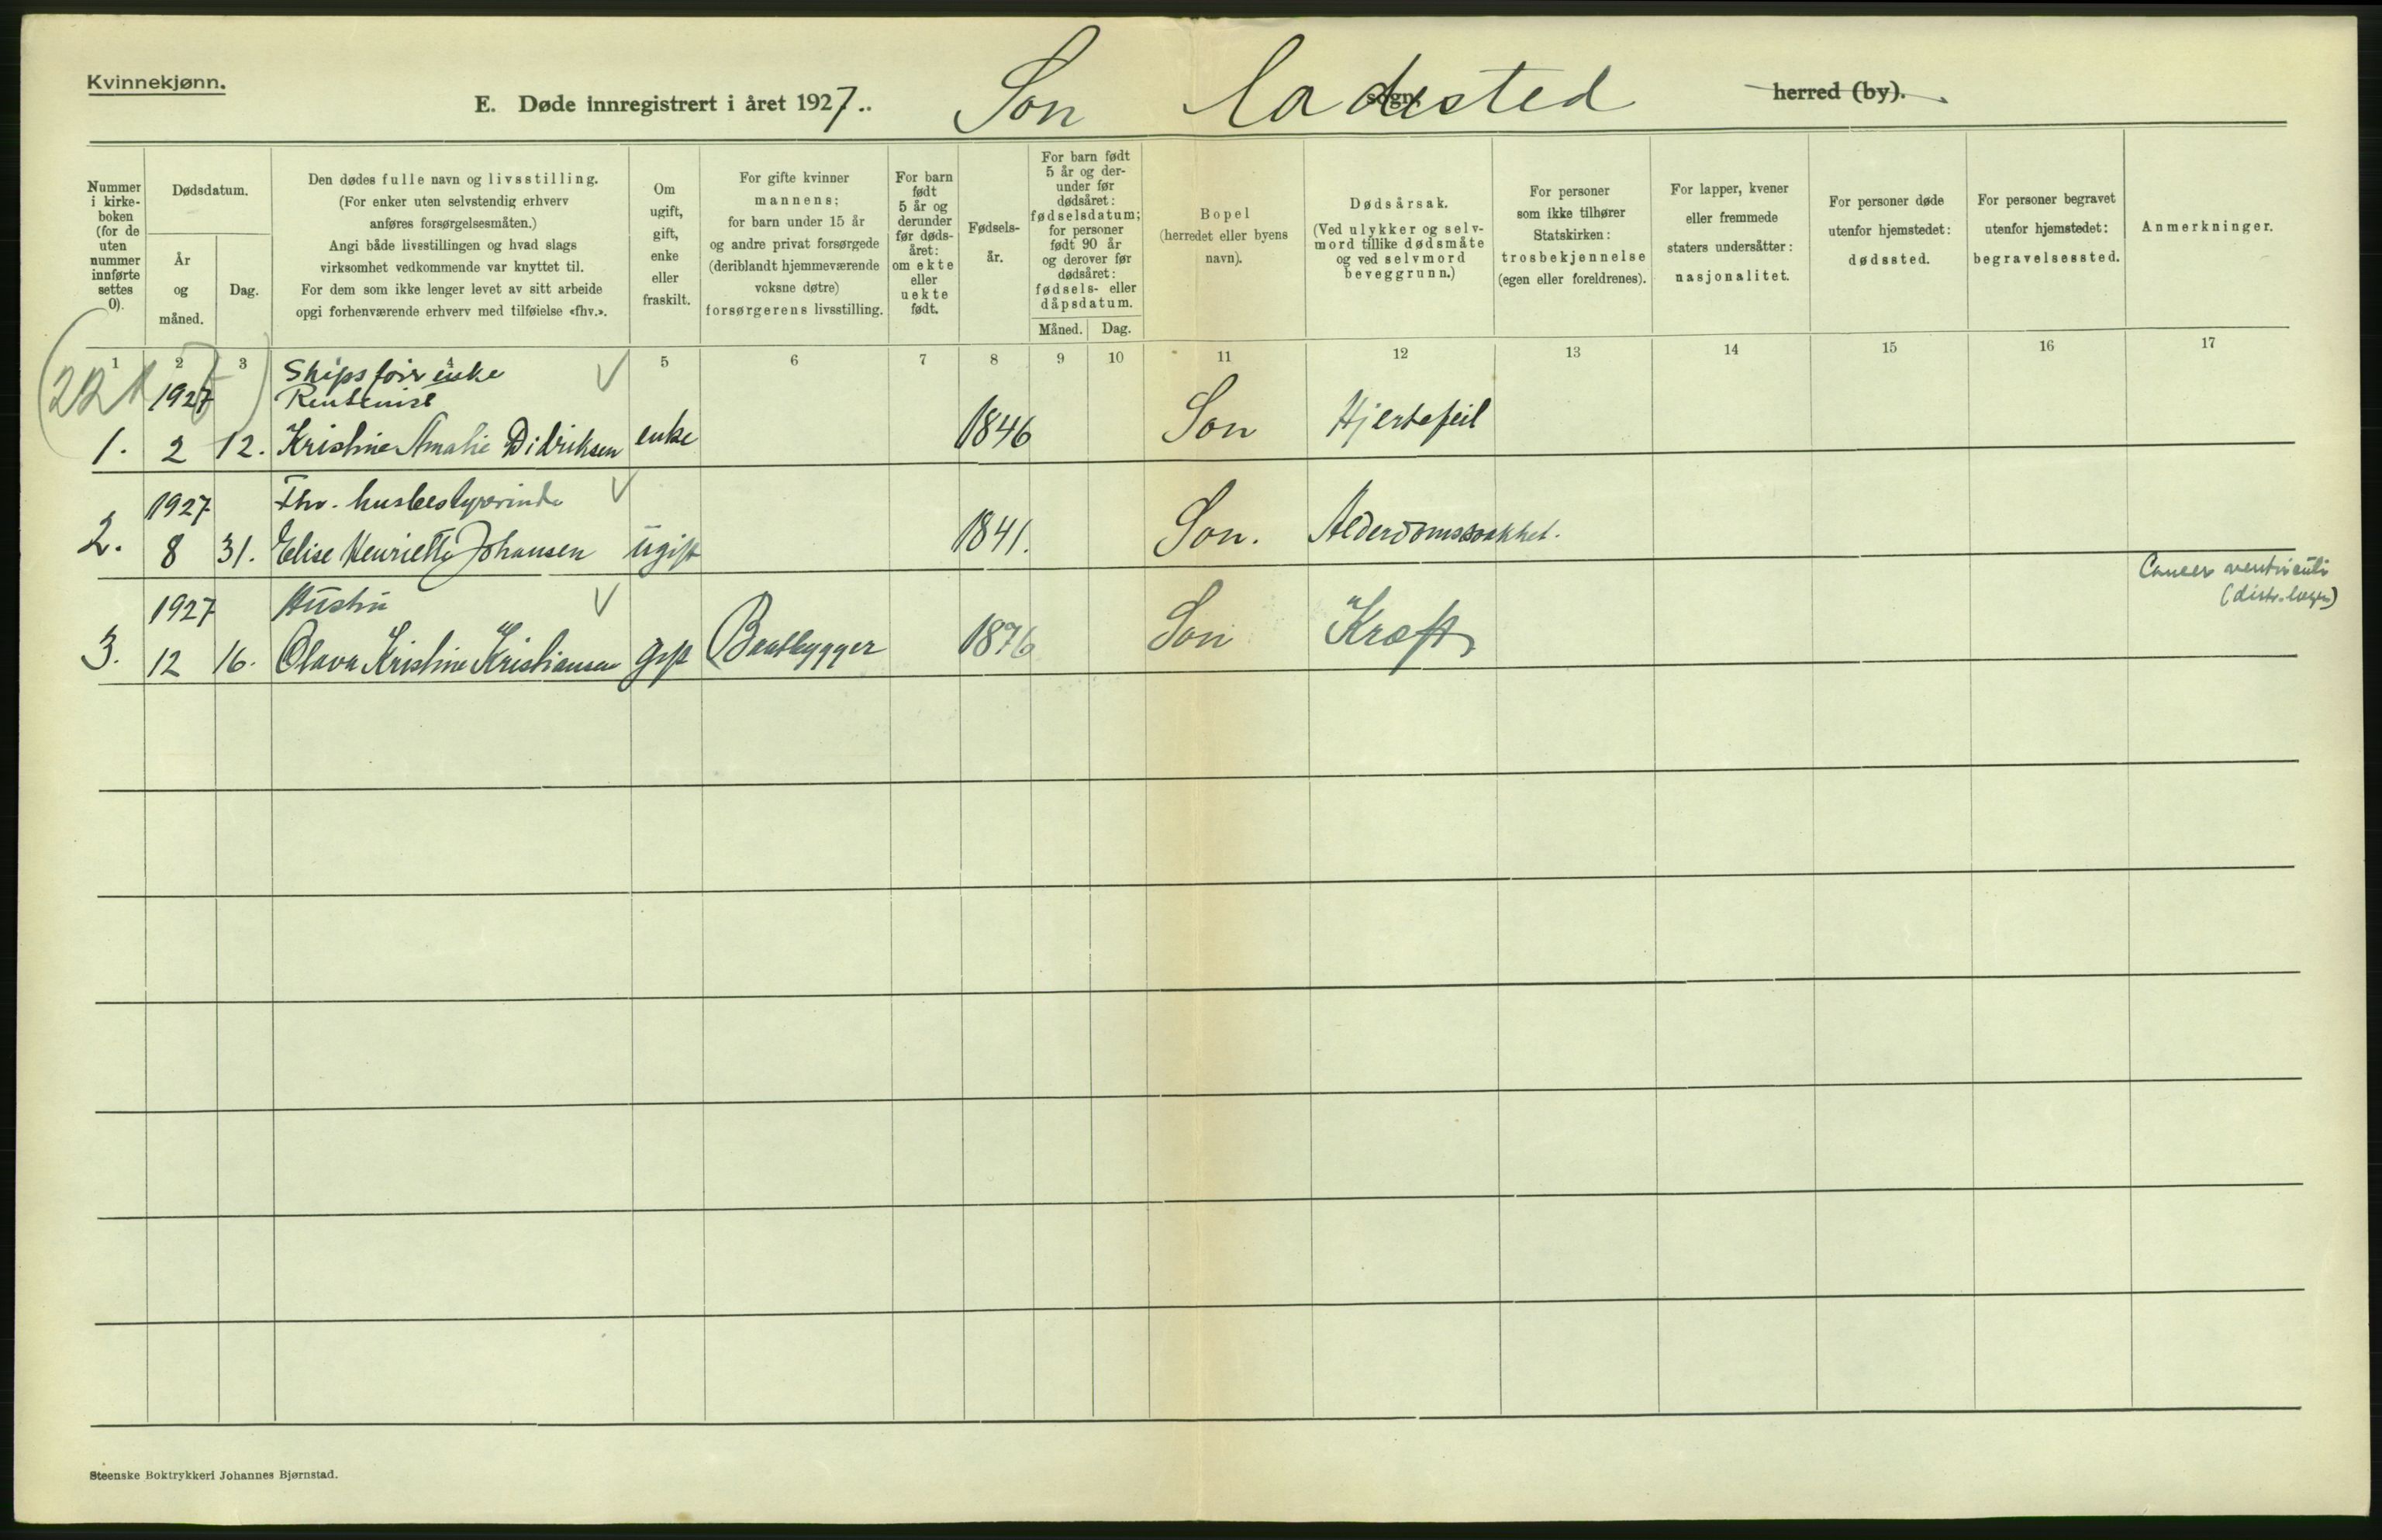 Kvinnekjønn.
E. Døde innregistrert i året 1927.. Son Ladested sogn. herred (by).
Nummer i kirke-boken (for de uten nummer innførte settes 0).
Dødsdatum.
År og måned.
Dag.
Den dødes fulle navn og livsstilling.
(For enker uten selvstendig erhverv
anføres forsørgelsesmåten.)
Angi både livsstillingen og hvad slags
virksomhet vedkommende var knyttet til.
For dem som ikke lenger levet av sitt arbeide
opgi forhenværende erhverv med tilføielse «fhv.».
Om
ugift,
gift,
enke
eller
fraskilt.
For gifte kvinner
mannens;
for barn under 15 år
og andre privat forsørgede
(deriblandt hjemmeværende
voksne døtre)
forsørgerens livsstilling.
For barn
født
5 år og
derunder
før døds-
året:
om ekte
eller
uekte
født.
Fødsels-
år.
For barn født
5 år og der-
under før
dødsåret:
fødselsdatum;
for personer
født 90 år
og derover før
dødsåret:
fødsels- eller
dåpsdatum.
Måned. Dag.
Bopel
(herredet eller byens
navn).
Dødsårsak.
(Ved ulykker og selv-
mord tillike dødsmåte
og ved selvmord
beveggrunn.)
For personer
som ikke tilhører
Statskirken:
trosbekjennelse
(egen eller foreldrenes).
For lapper, kvener
eller fremmede
staters undersåtter:
nasjonalitet.
For personer døde
utenfor hjemstedet:
dødssted.
For personer begravet
utenfor hjemstedet:
begravelsessted.
Anmerkninger.
1 2 3 4 5 6 7 8 9 10 11 12 13 14 15 16 17
Skipsfører enke
1927
1. 2 12. Kristine Amalie Didriksen enke 1846 Son Hjertefeil
1927 Fhv. husbestyrerinde
2. 8 31. Elise Henriette Johansen ugift 1841. Son. Alderdomssvakhet.
1927 Hustru Cancer ventriculi
(distr.lægen)
3. 12 16. Olava Kristine Kristiansen gift Baatbygger 1876 Son Kræft
Steenske Boktrykkeri Johannes Bjørnstad.